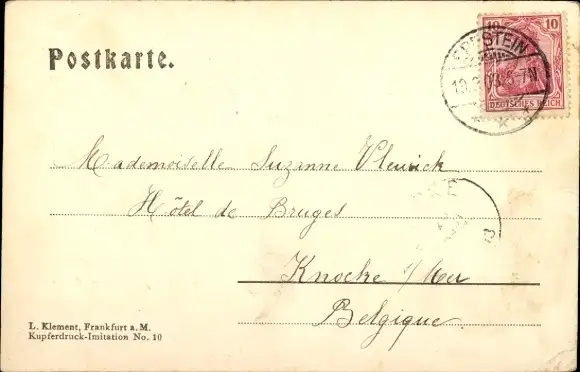 Postkarte.
10 10
DEUTSCHES REICH
EPPSTEIN
5-7N
Mademoiselle Suzanne Vleurick
Hôtel de Bruges
Knocke s/Mer
Belgique
L. Klement, Frankfurt a. M.
Kupferdruck-Imitation No. 10